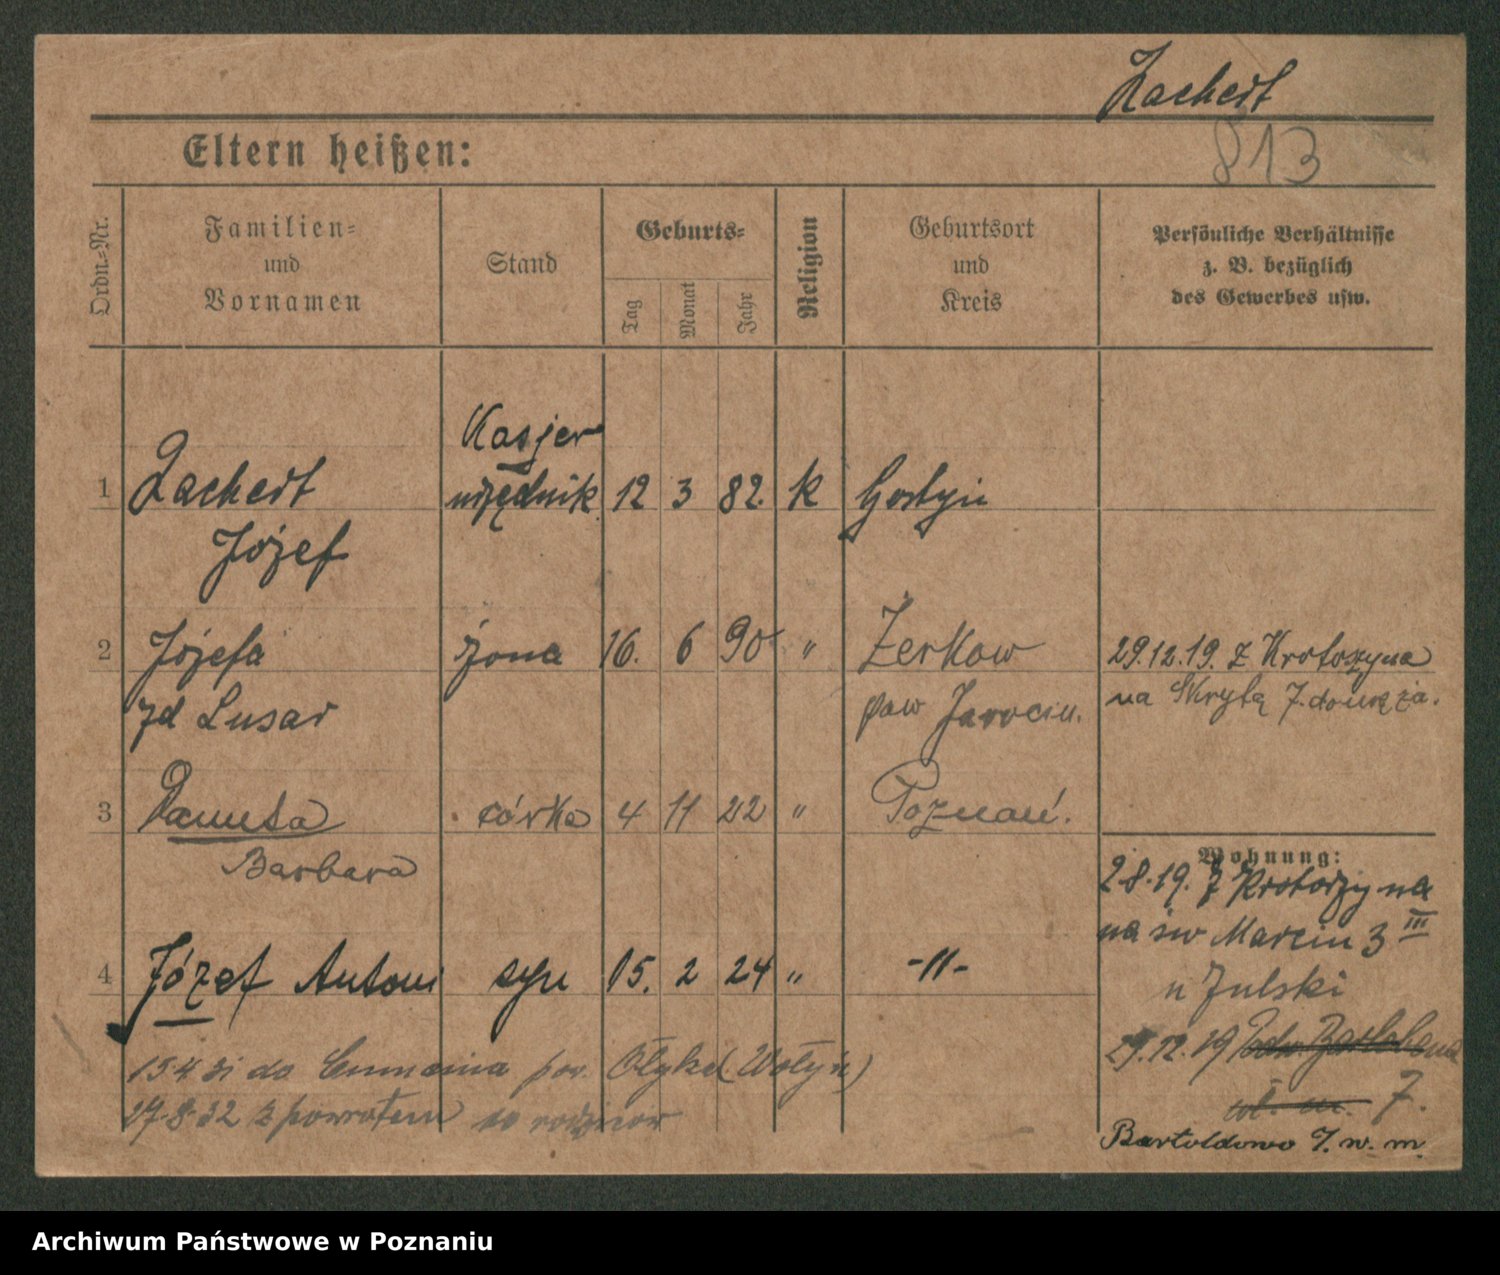 Zachert
813
Eltern heißen:
Ordn.-Nr.
Familien-
und
Vornamen
Stand
Geburts-
Tag
Monat
Jahr
Religion
Geburtsort
und
Kreis
Persönliche Verhältnisse
z. B. bezüglich
des Gewerbes usw.
Kasjer
1 Zachert urzędnik 12 3 82. k Gostyń
Józef
2 Józefa żona 16. 6 90 " Żerkow 29.12.19. z Krotoszyna
zd Lusar pow Jarocin. na Skrytą 7. do męża.
3 Danuta córka 4 11 22 " Poznań.
Barbara
Wohnung:
2.8.19. z Krotoszyna
na św Marcin 3 III
u Julski
4 Józef Antoni syn 15. 2 24 " -11-
29.12.19
15.4.31 do pow. Ołyka (Wołyń)
7.
27.8.32 z powrotem do rodziców
Bartoldowo 7. w. m.
Archiwum Państwowe w Poznaniu